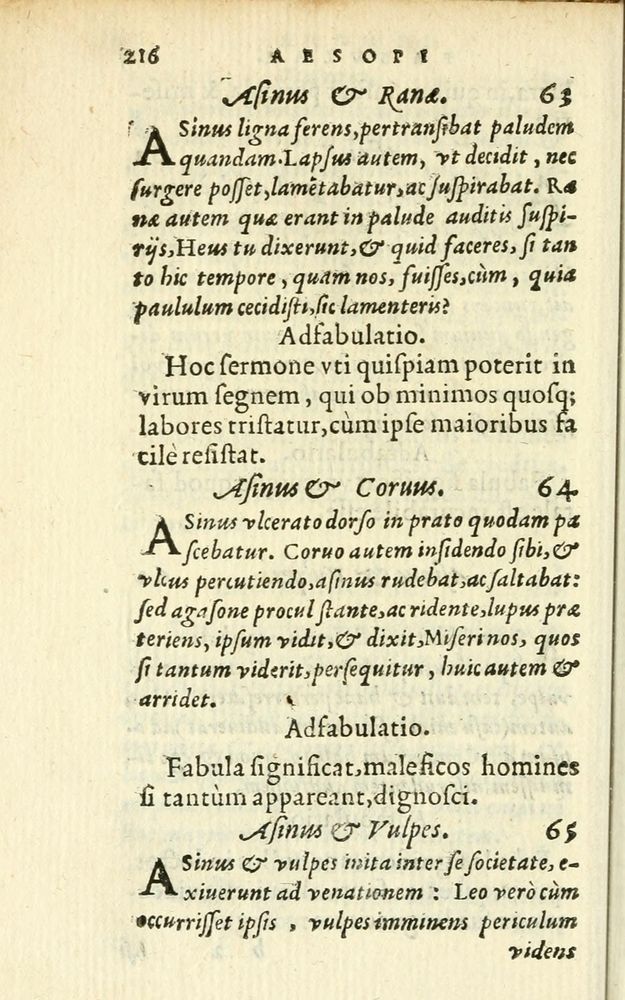 216 AESOPI
Asinus & Ranæ. 63
ASinus ligna ferens, pertransibat paludem
quandam. Lapsus autem, vt decidit, nec
surgere posset, lamẽtabatur, ac suspirabat. Ra
næ autem quæ erant in palude auditis suspi-
rijs, Heus tu dixerunt, & quid faceres, si tan
to hic tempore, quam nos, fuisses, cùm, quia
paululum cecidisti, sic lamenteris?
Adfabulatio.
Hoc sermone vti quispiam poterit in
virum segnem, qui ob minimos quosq;
labores tristatur, cùm ipse maioribus fa
cilè resistat.
Asinus & Coruus. 64
ASinus vlcerato dorso in prato quodam pa
scebatur. Coruo autem insidendo sibi, &
vlcus percutiendo, asinus rudebat, ac saltabat:
sed agasone procul stante, ac ridente, lupus præ
teriens, ipsum vidit, & dixit, Miseri nos, quos
si tantum viderit, persequitur, huic autem &
arridet.
Adfabulatio.
Fabula significat, maleficos homines
si tantùm appareant, dignosci.
Asinus & Vulpes. 65
ASinus & vulpes inita inter se societate, e-
xiuerunt ad venationem: Leo verò cùm
occurrisset ipsis, vulpes imminens periculum
videns